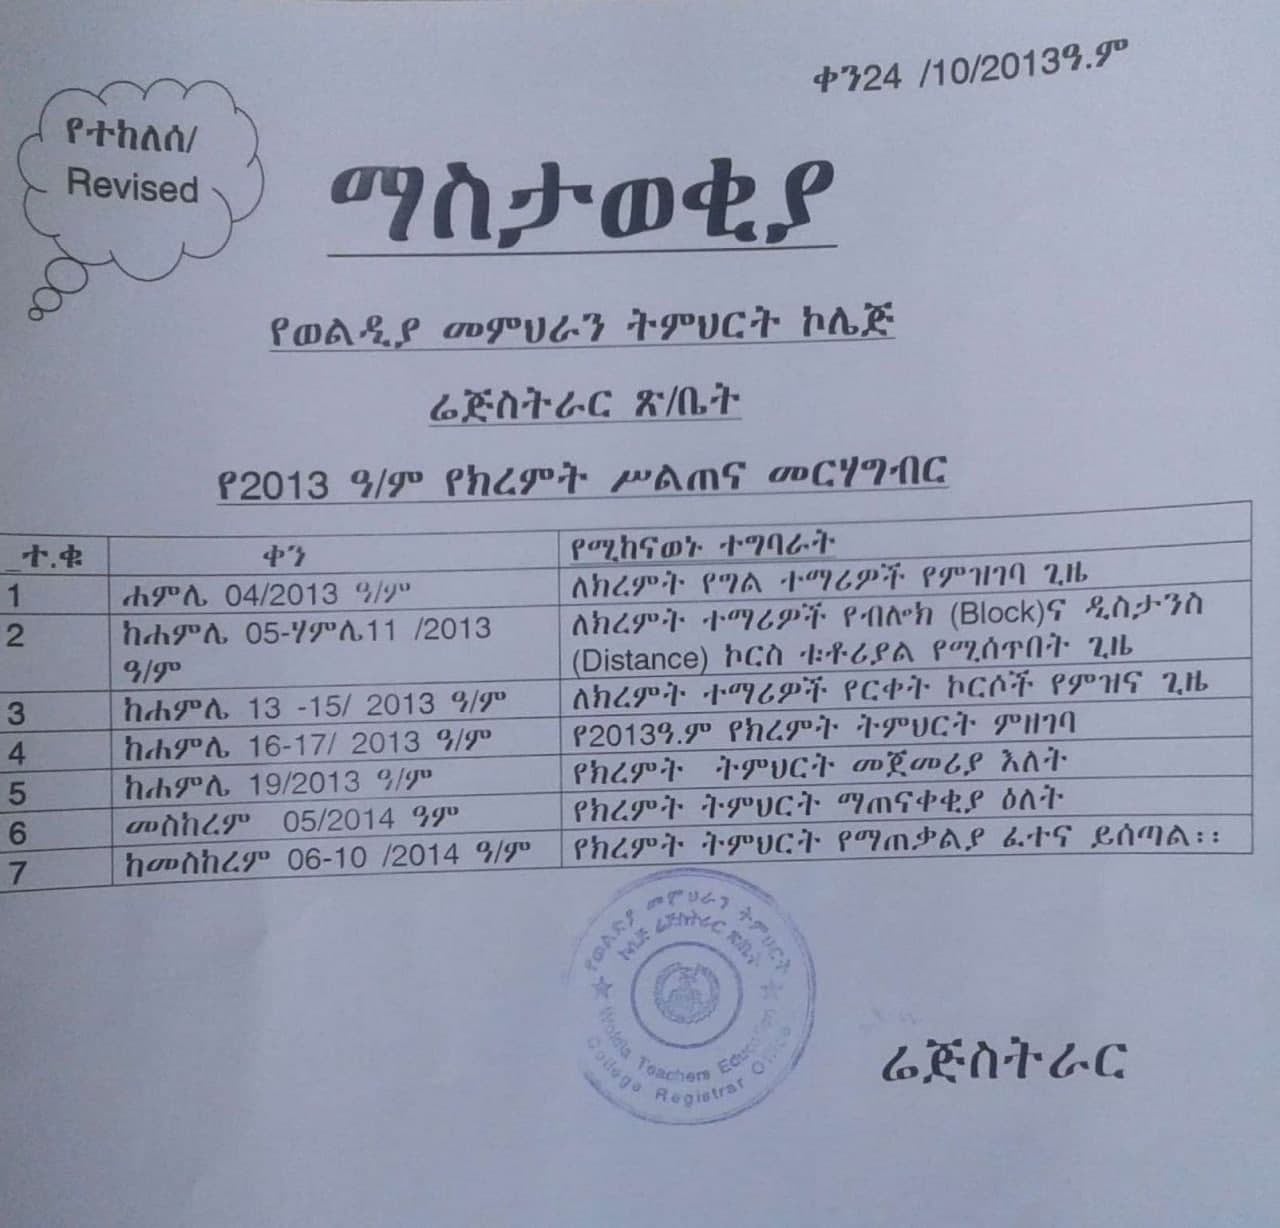 ቀን24 /10/2013ዓ.ም
የተከለሰ/
Revised
ማስታወቂያ
የወልዲያ መምህራን ትምህርት ኮሌጅ
ሬጅስትራር ጽ/ቤት
የ2013 ዓ/ም የክረምት ሥልጠና መርሃግብር
ተ.ቁ ቀን የሚከናወኑ ተግባራት
1 ሐምሌ 04/2013 ዓ/ም ለክረምት የግል ተማሪዎች የምዝገባ ጊዜ
2 ከሐምሌ 05-ሃምሌ11 /2013 ለክረምት ተማሪዎች የብሎክ (Block)ና ዲስታንስ
ዓ/ም (Distance) ኮርስ ቱቶሪያል የሚሰጥበት ጊዜ
3 ከሐምሌ 13 -15/ 2013 ዓ/ም ለክረምት ተማሪዎች የርቀት ኮርሶች የምዝና ጊዜ
4 ከሐምሌ 16-17/ 2013 ዓ/ም የ2013ዓ.ም የክረምት ትምህርት ምዘገባ
5 ከሐምሌ 19/2013 ዓ/ም የክረምት ትምህርት መጀመሪያ እለት
6 መስከረም 05/2014 ዓም የክረምት ትምህርት ማጠናቀቂያ ዕለት
7 ከመስከረም 06-10 /2014 ዓ/ም የክረምት ትምህርት የማጠቃልያ ፈተና ይሰጣል፡፡
የወልድያ መምህራን ትምህርት
ኮሌጅ ሬጅስትራር ጽ/ቤት
Woldia Teachers Education
College Registrar Office
ሬጅስትራር